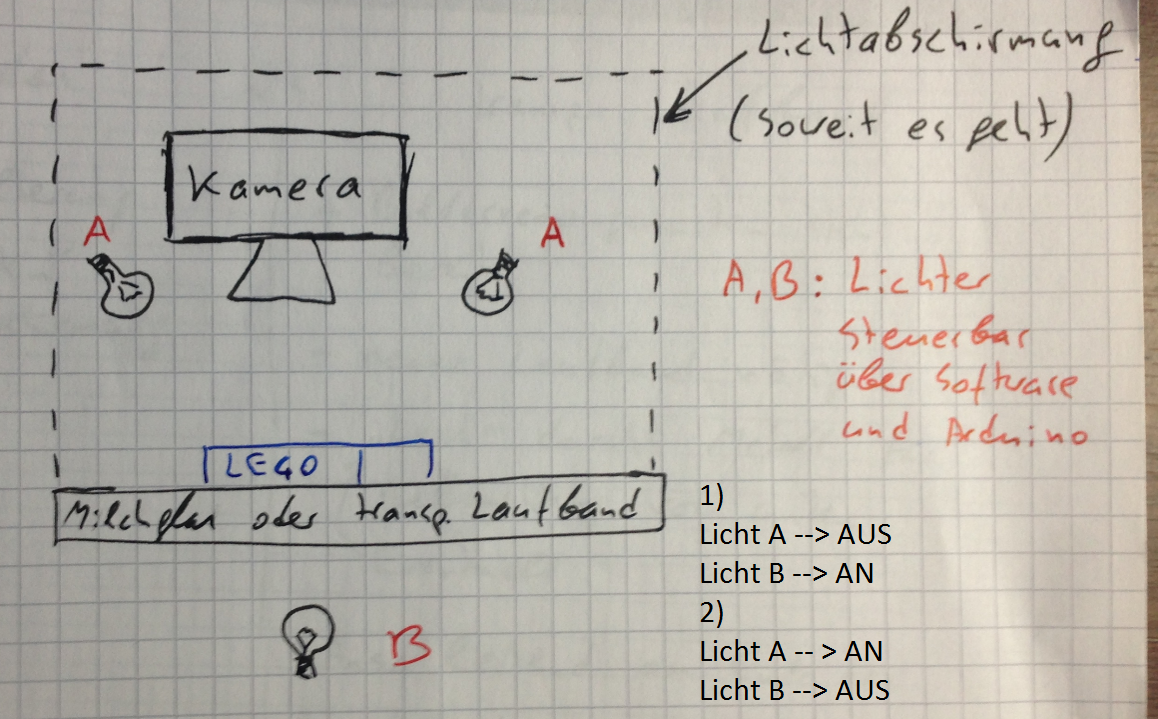 Lichtabschirmung
(soweit es geht)
Kamera
A
A
A, B: Lichter
steuerbar
über Software
und Arduino
LEGO
Milchglas oder transp. Laufband
B
1)
Licht A --> AUS
Licht B --> AN
2)
Licht A -- > AN
Licht B --> AUS